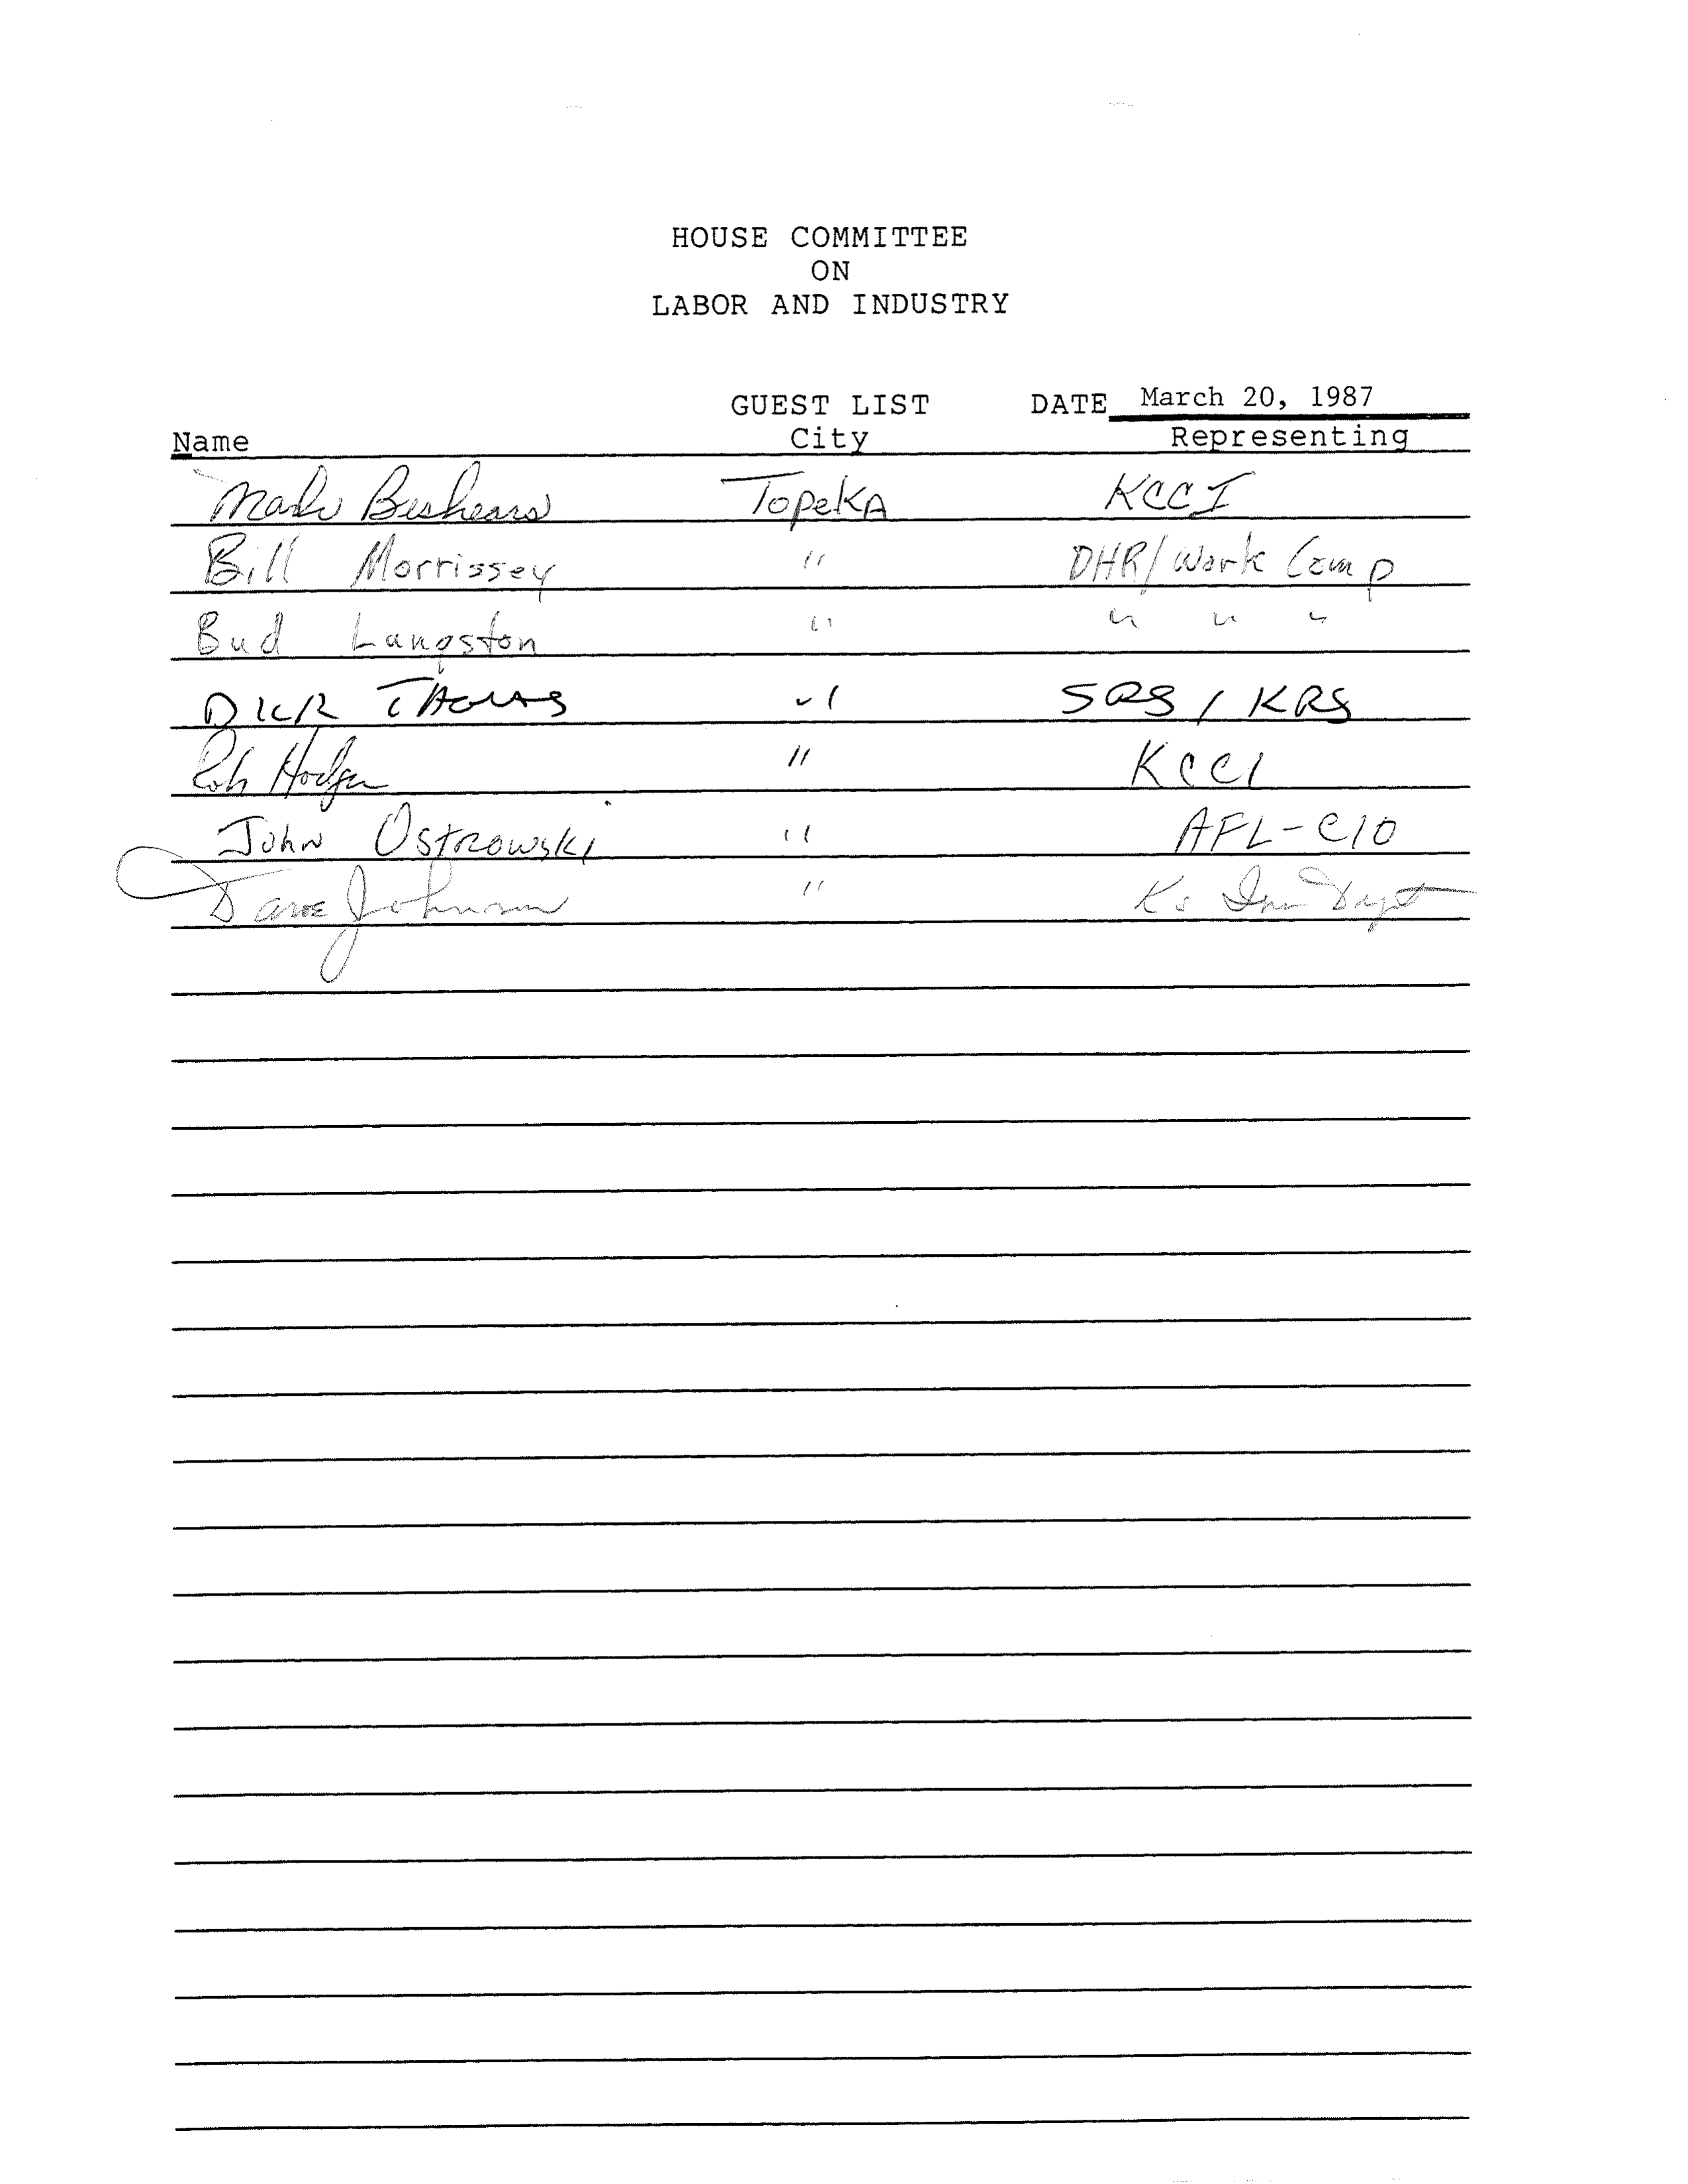 HOUSE COMMITTEE
ON
LABOR AND INDUSTRY
GUEST LIST DATE March 20, 1987
Name City Representing
Mark Beshears Topeka KCCI
Bill Morrissey " DHR/Work Comp
Bud Langston " " " "
Dick Thomas " SRS / KRS
Rob Hodges " KCCI
John Ostrowski " AFL-CIO
Dave Johnson " Ks Ins Dept